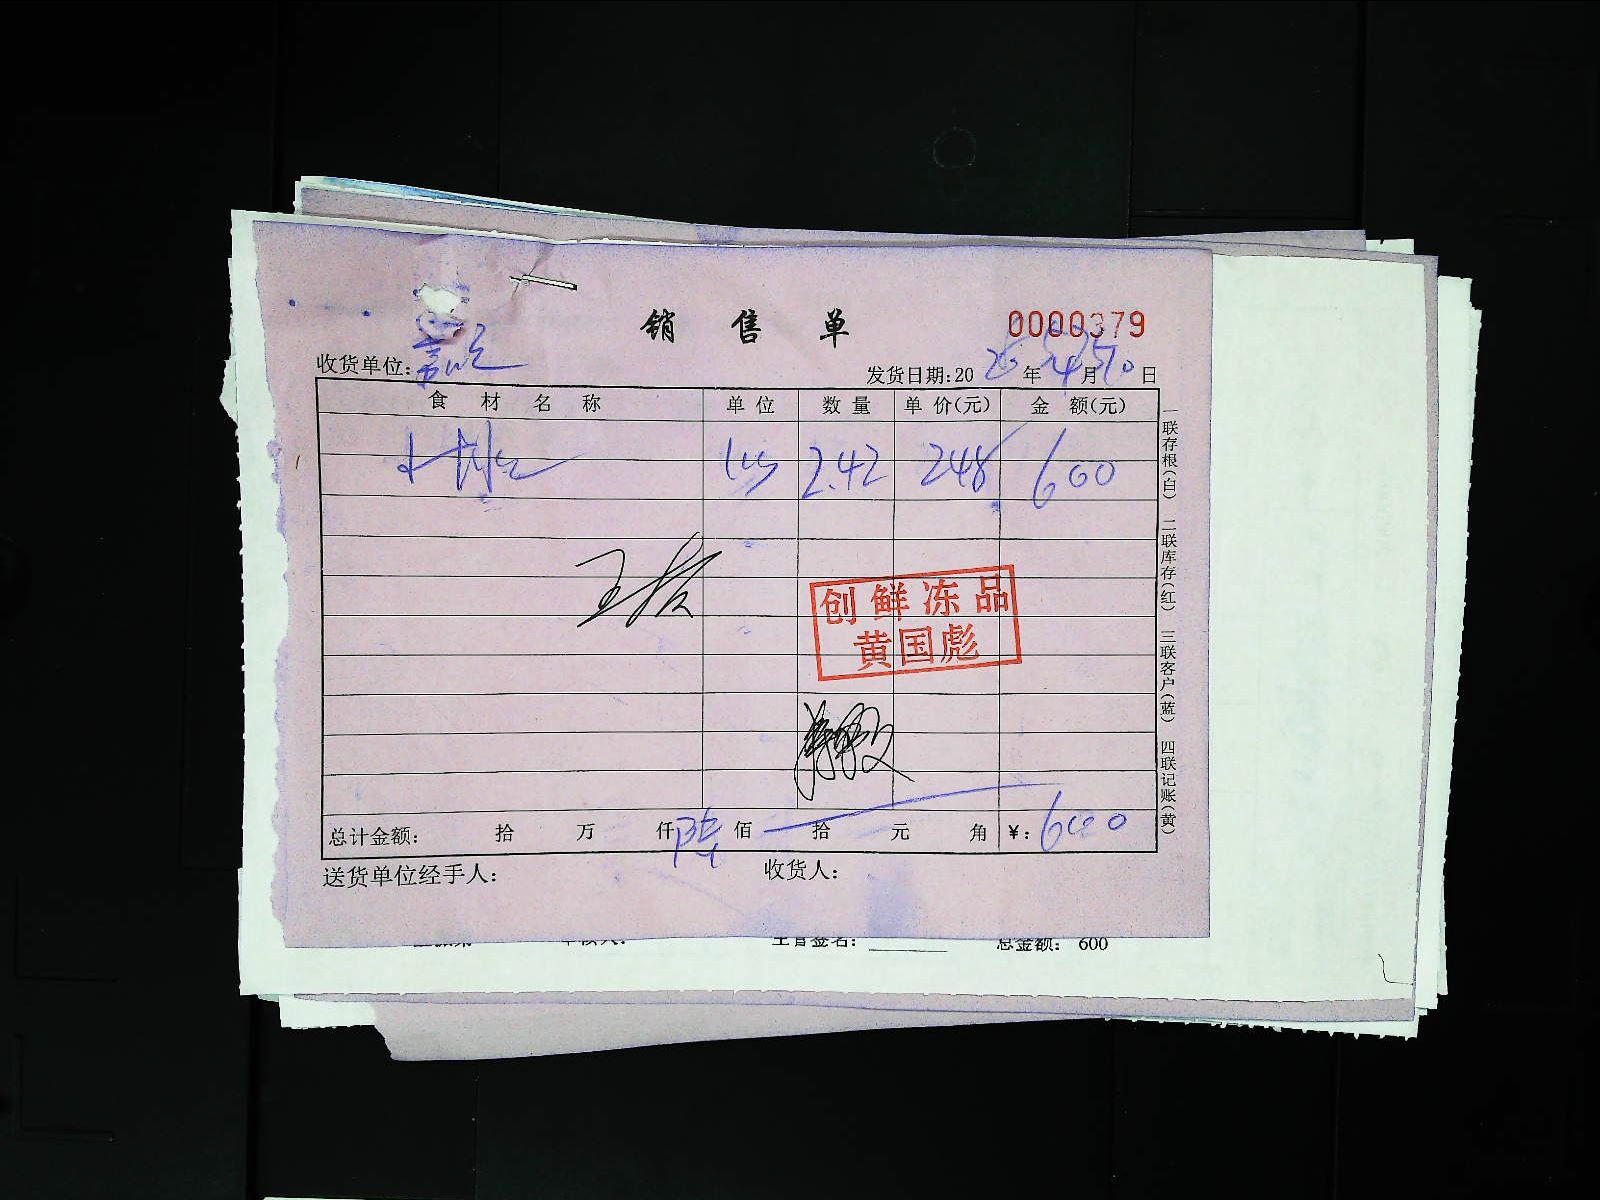 销售单
0000379
收货单位：
发货日期:20 年 月 日
食材名称 单位 数量 单价(元) 金额(元)
2.42 248 600
创鲜冻品
黄国彪
总计金额： 拾 万 仟 陆 佰 拾 元 角 ¥：600
送货单位经手人： 收货人：
一联存根(白) 二联库存(红) 三联客户(蓝) 四联记账(黄)
主管签名： 总金额： 600